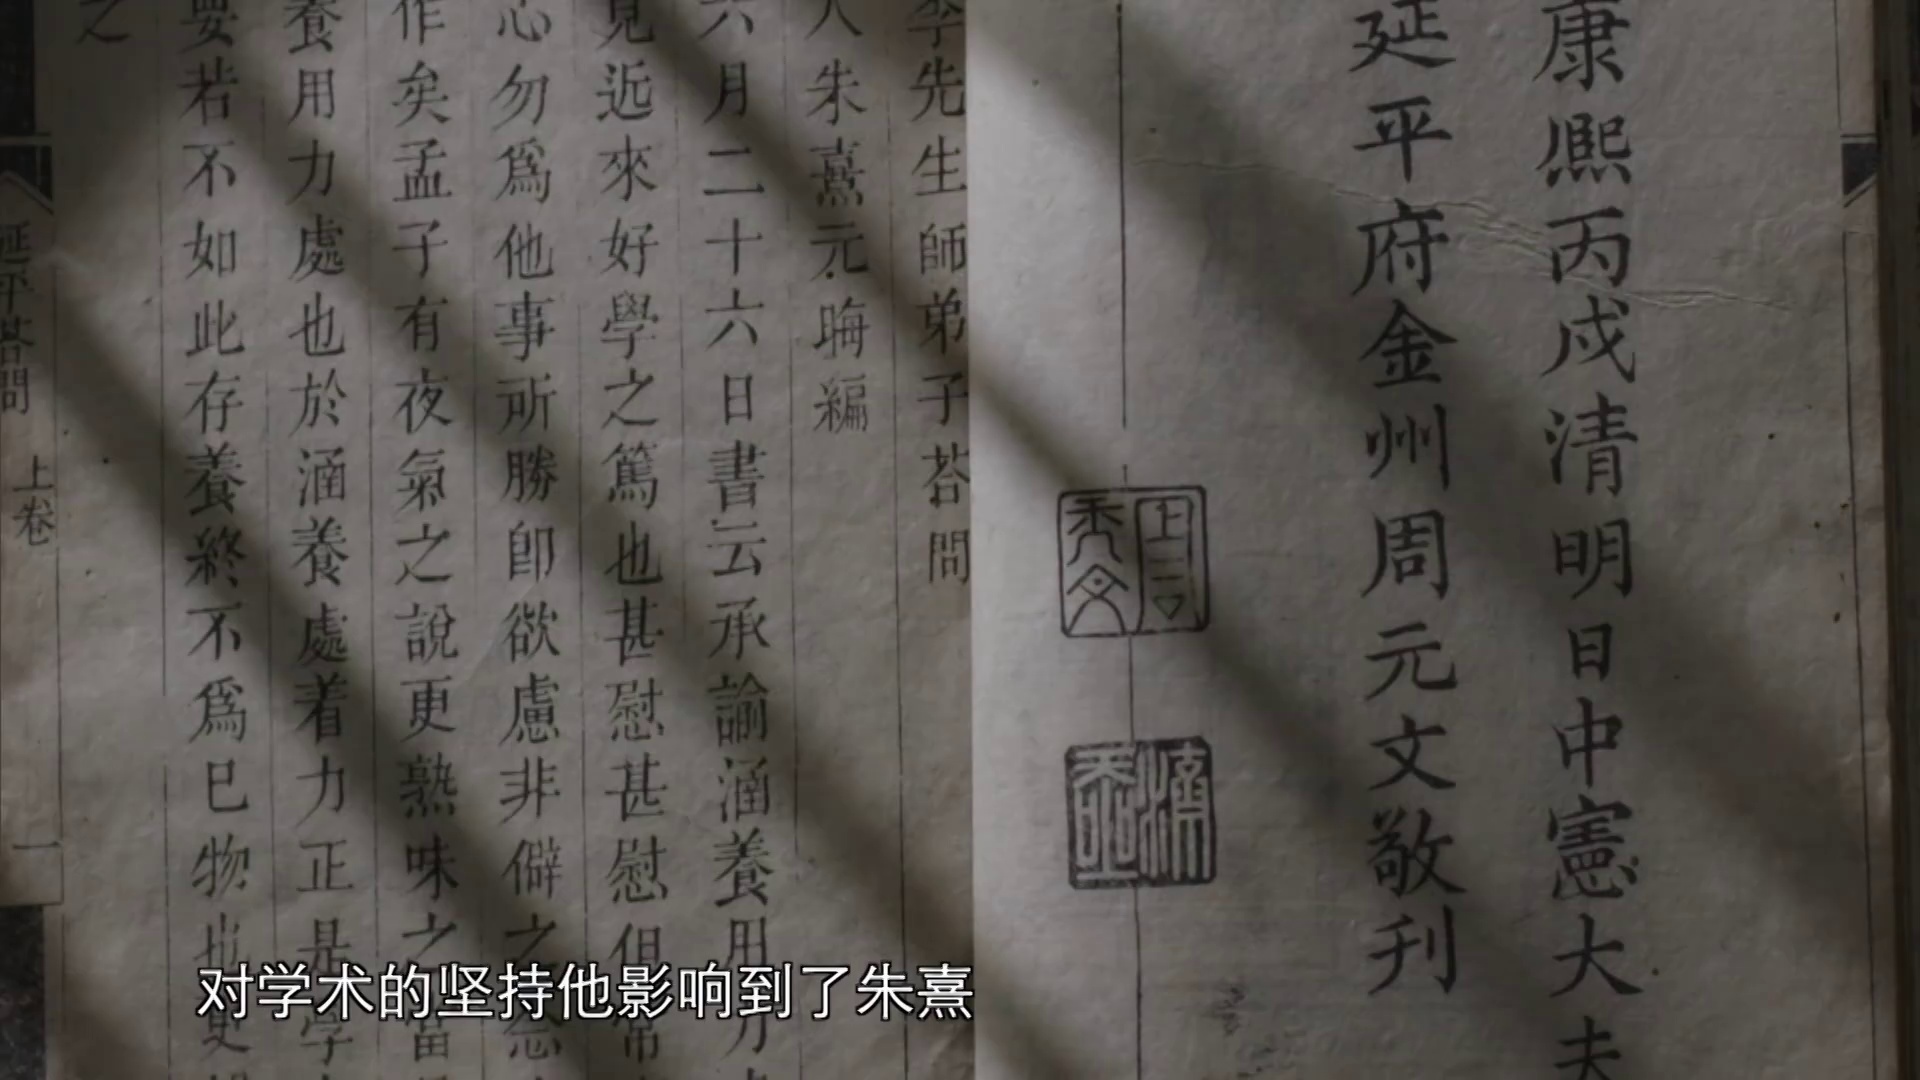 康熙丙戌清明日中憲大夫
延平府金州周元文敬刊
李先生師弟子荅問
人朱熹元晦編
六月二十六日書云承諭涵養用力
見近來好學之篤也甚慰甚慰但常
心勿爲他事所勝卽欲慮非僻之念
作矣孟子有夜氣之說更熟味之當
養用力處也於涵養處着力正是学
要若不如此存養終不爲已物也更
之
延平荅問 上卷 一
对学术的坚持他影响到了朱熹